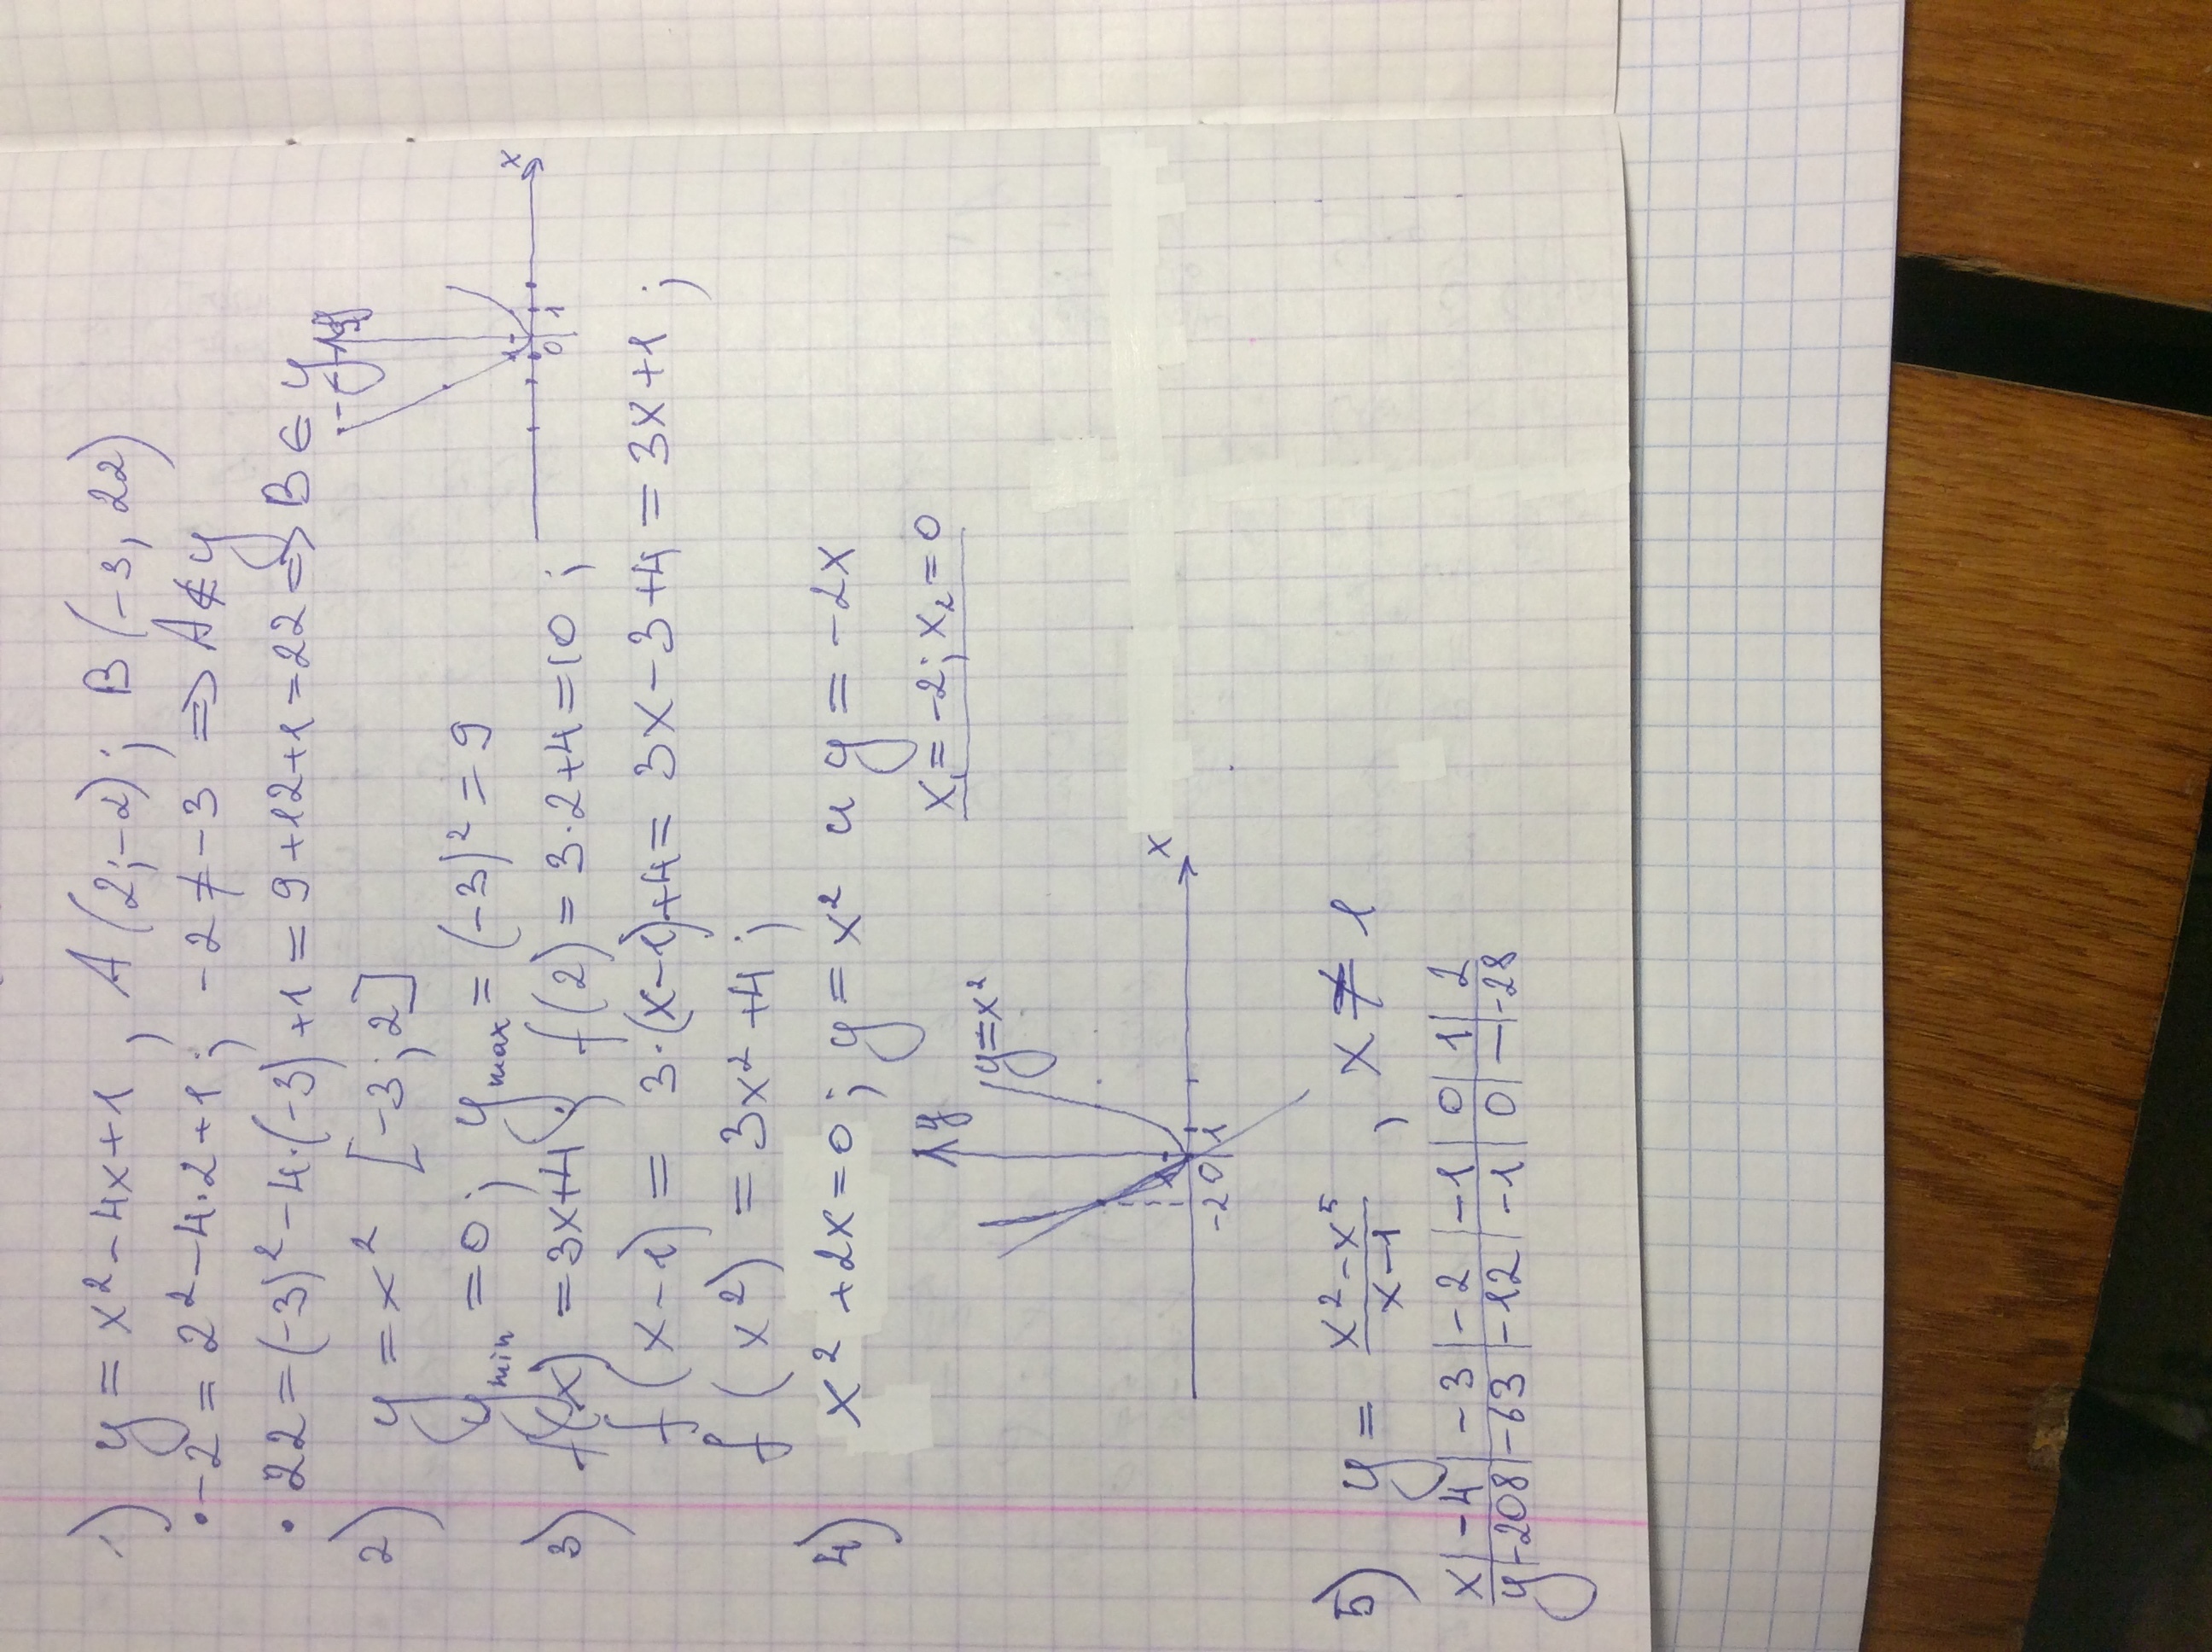 1) y = x² - 4x + 1 , A (2; -2) ; B (-3, 22)
• -2 = 2² - 4·2 + 1 ; -2 ≠ -3 => A ∉ y
• 22 = (-3)² - 4·(-3) + 1 = 9 + 12 + 1 = 22 => B ∈ y
2) y = x² [-3 ; 2]
y min = 0 ; y max = (-3)² = 9
x
0 1
3) f(x) = 3x + 4 ; f(2) = 3·2 + 4 = 10 ;
f (x - 1) = 3·(x - 1) + 4 = 3x - 3 + 4 = 3x + 1 ;
f (x²) = 3x² + 4 ;
4) x² + 2x = 0 ; y = x² и y = -2x
x₁ = -2 ; x₂ = 0
y
y = x²
x
-2 0 1
5) y = (x² - x⁵)/(x - 1) , x ≠ 1
x | -4 | -3 | -2 | -1 | 0 | 1 | 2
y | -208 | -63 | -12 | -1 | 0 | — | -28